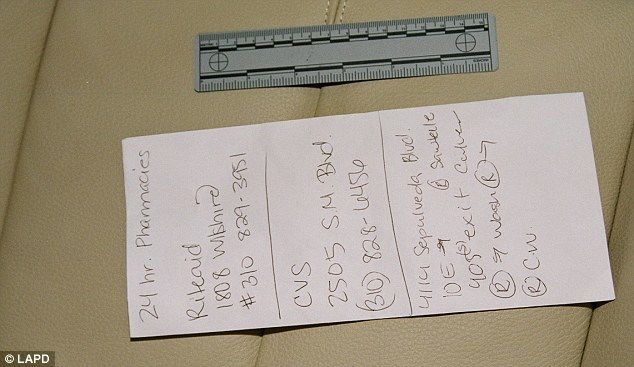 24 hr. Pharmacies
Riteaid
1808 Wilshire
# 310 829-3951
CVS
2505 S.M. Blvd.
(310) 828-6456
Sepulveda Blvd.
10 E → @ Sawtelle
405 exit Culver
Ⓡ → Wash Ⓡ →
Ⓡ CW
© LAPD